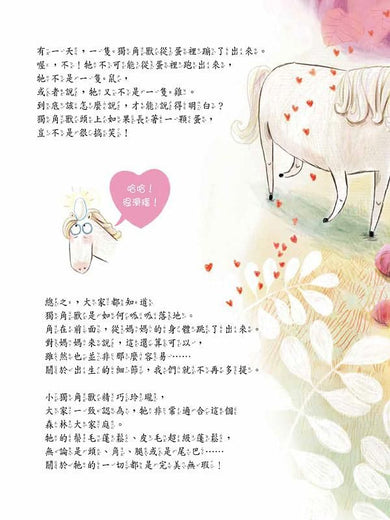 有一天，一隻獨角獸從蛋裡蹦了出來。
喔，不！牠不可能從蛋裡跑出來，
牠不是一隻鼠，
或者說，牠又不是一隻雞。
到底該怎麼說，才能說得明白？
獨角獸頭上如果長著一顆蛋，
豈不是很搞笑！
哈哈！
很滑稽！
總之，大家都知道
獨角獸是如何呱呱落地。
角在前面，從媽媽的身體跳了出來。
對媽媽來說，這還算可以，
雖然也並非那麼容易……
關於出生的細節，我們就不再多提。
小獨角獸精巧玲瓏，
大家一致認為，牠非常適合這個
森林大家庭。
牠的鬃毛蓬鬆、皮毛超級蓬鬆，
無論是頭、角、腿或是尾巴……
關於牠的一切都是完美無瑕！